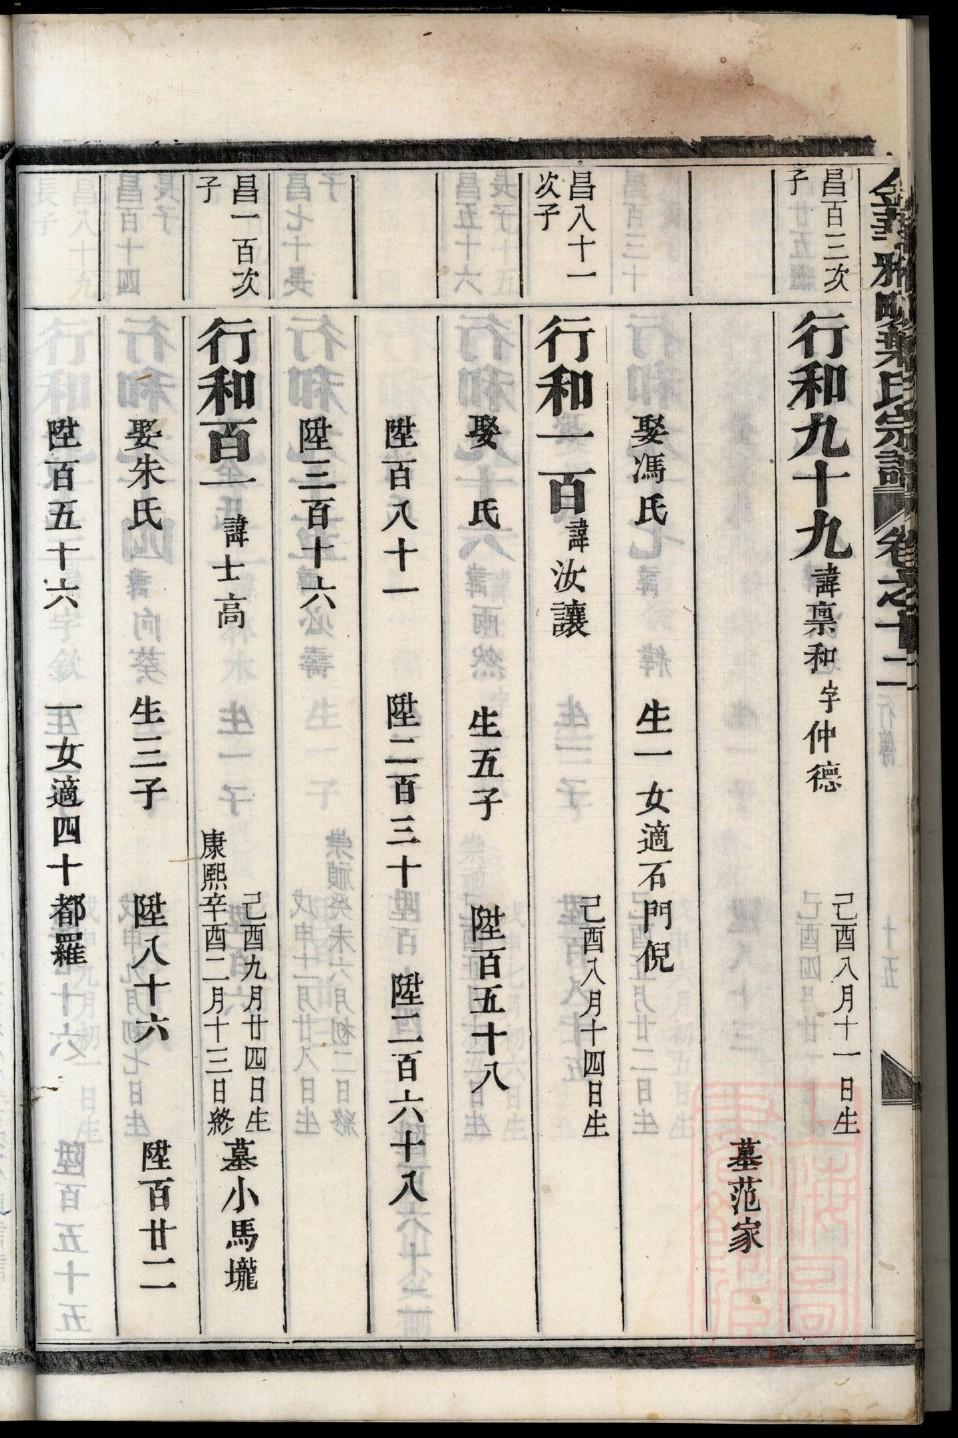 金華雅畈葉氏宗譜 卷之十二
昌百三次子
行和九十九 諱禀和 字仲德 己酉八月十一日生
墓范家
娶馮氏 生一女適石門倪
昌八十一次子
行和一百 諱汝讓 己酉八月十四日生
娶 氏 生五子 陞百五十八
陞百八十一 陞二百三十 陞二百六十八
陞三百十六
昌一百次子
行和百一 諱士高 己酉九月廿四日生 康熙辛酉二月十三日終 墓小馬壠
娶朱氏 生三子 陞八十六 陞百廿二
陞百五十六 一女適四十都羅